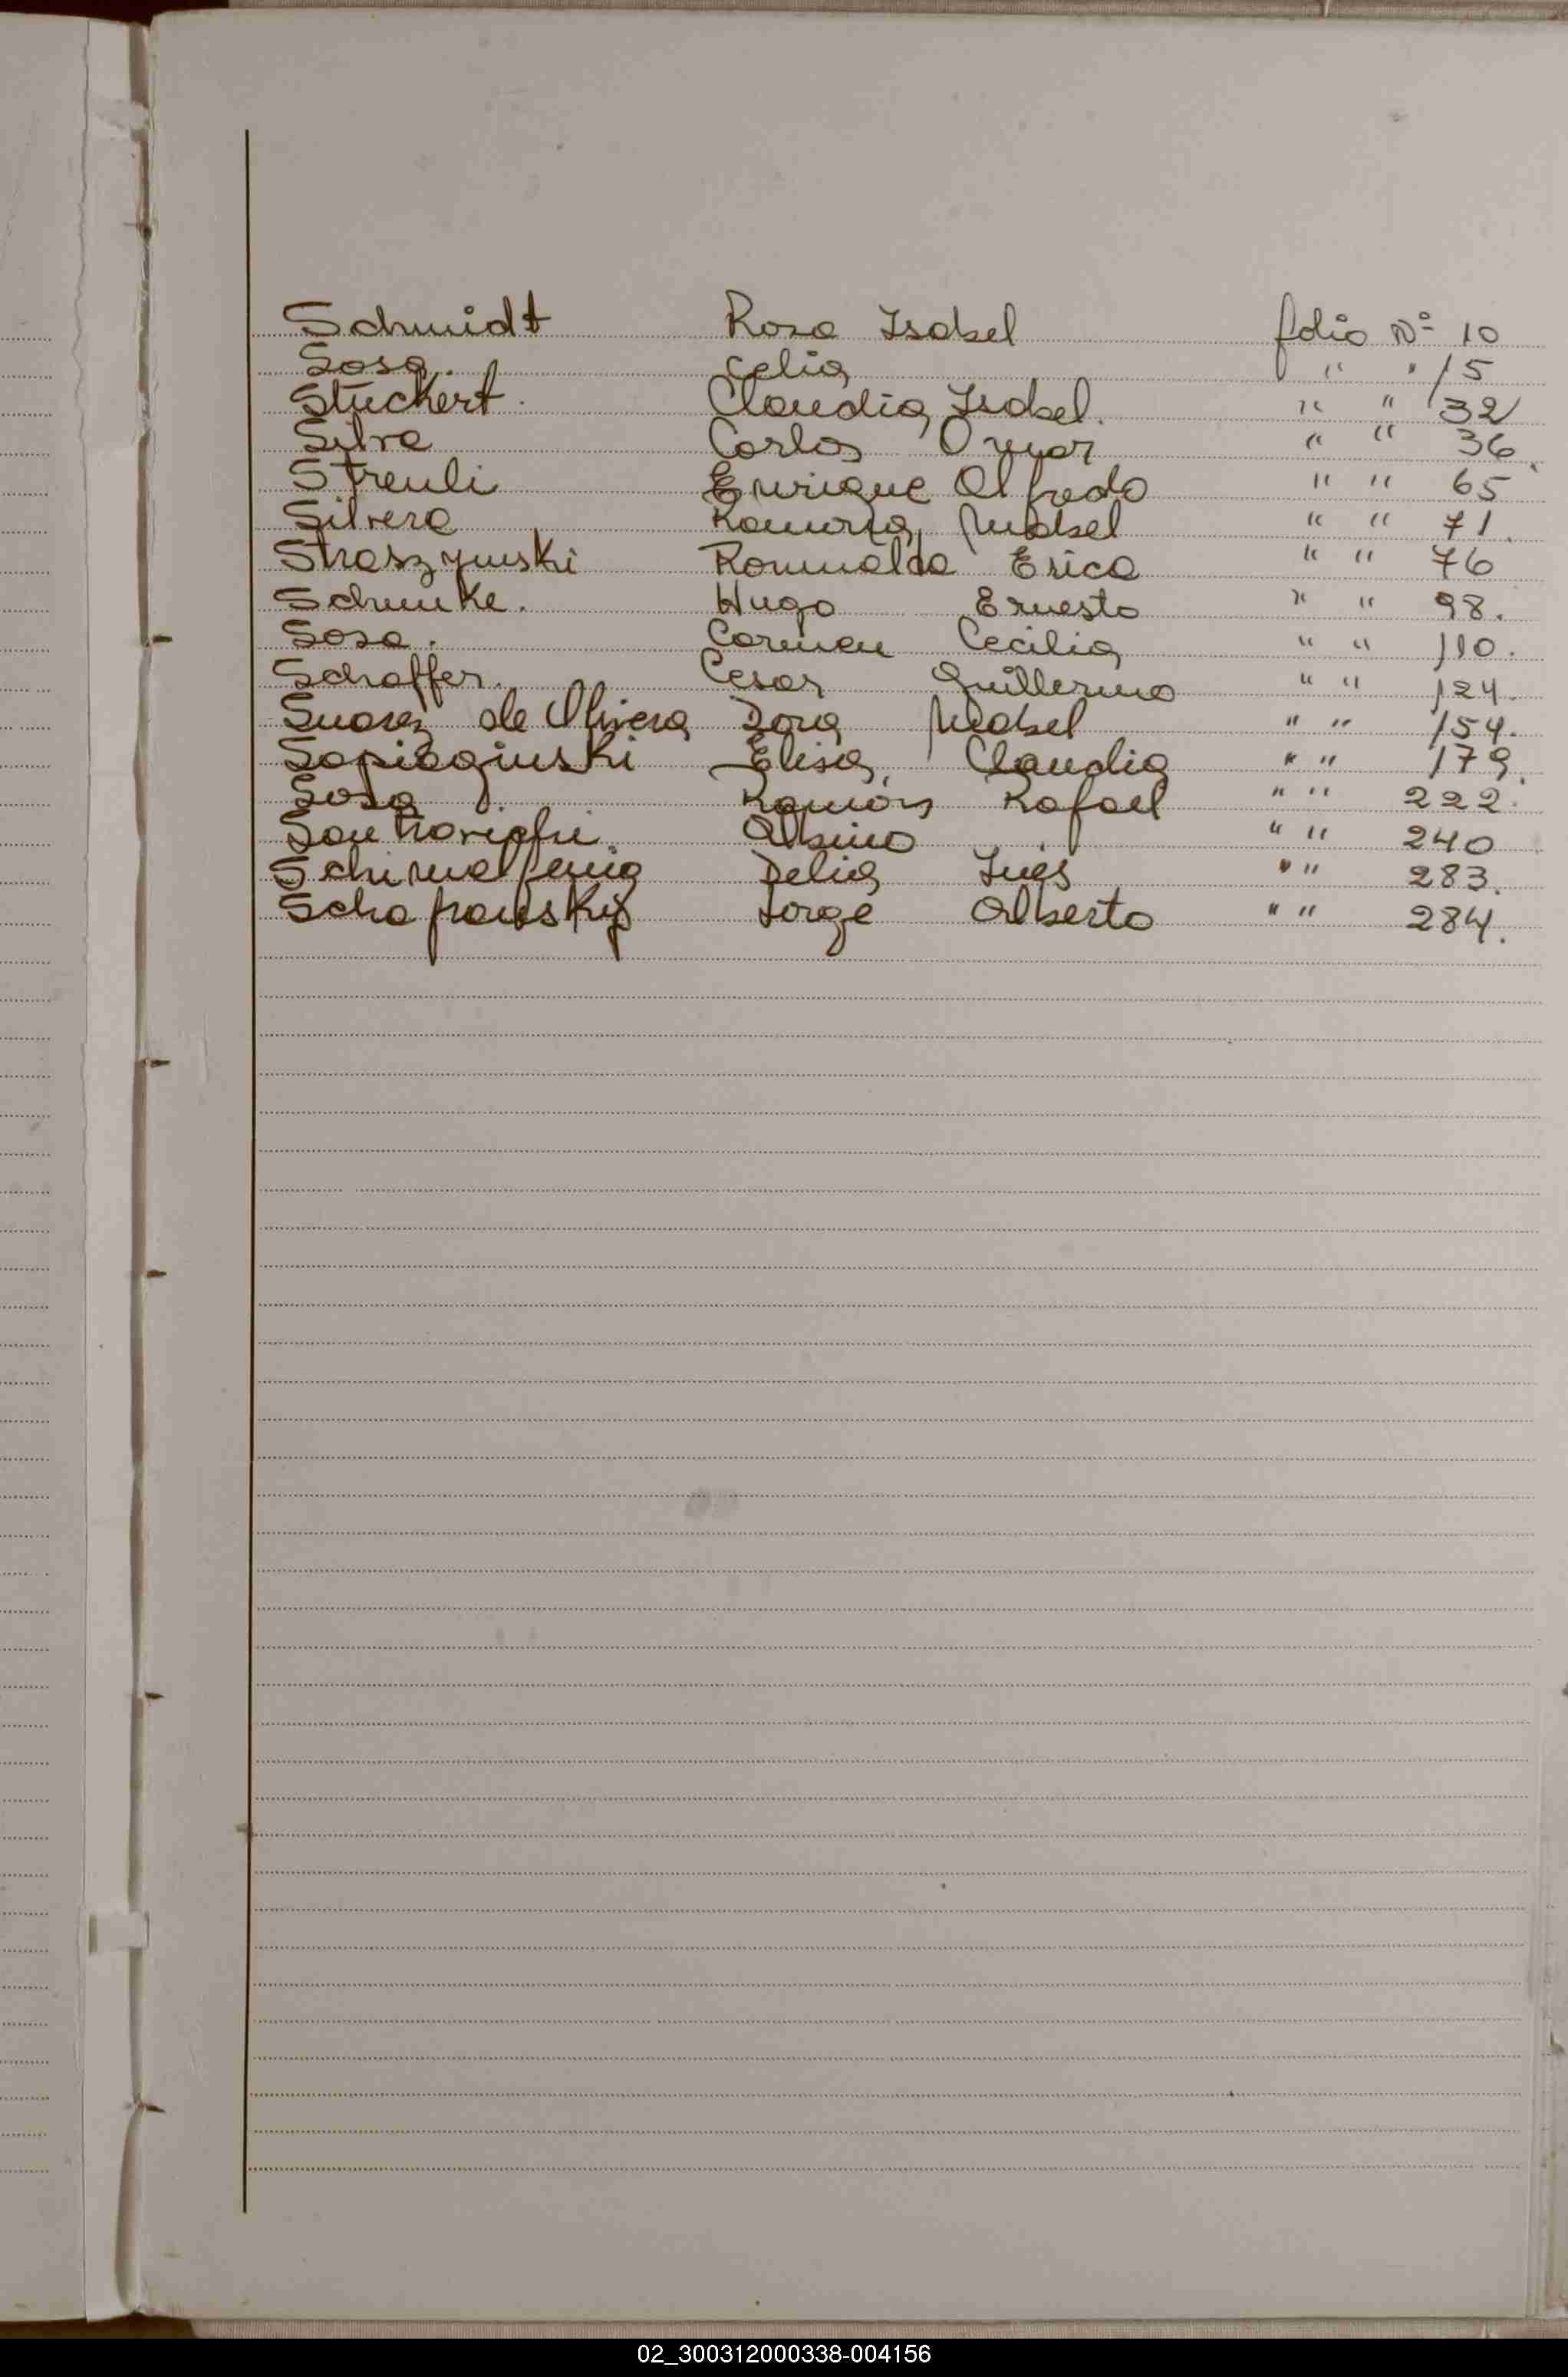 Schmidt Rosa Isabel folio Nº 10
Sosa. Celia " " 15
Stuckert. Claudia Isabel. " " 32
Silva Carlos Omar " " 36
Streuli Enrique Alfredo " " 65
Silvera Ramona Mabel " " 71.
Straszynski Romualda Erica " " 76
Schunke. Hugo Ernesto " " 98.
Sosa. Carmen Cecilia " " 110.
Schaffer. Cesar Guillermo " " 124.
Suarez de Olivera Dora Mabel " " 154.
Sapiaginski Elisa Claudia " " 179.
Sosa Ramón Rafael " " 222.
Albino " " 240
Schimalfenig Delia Inés " " 283.
Schafransky Jorge Alberto " " 284.
02_300312000338-004156